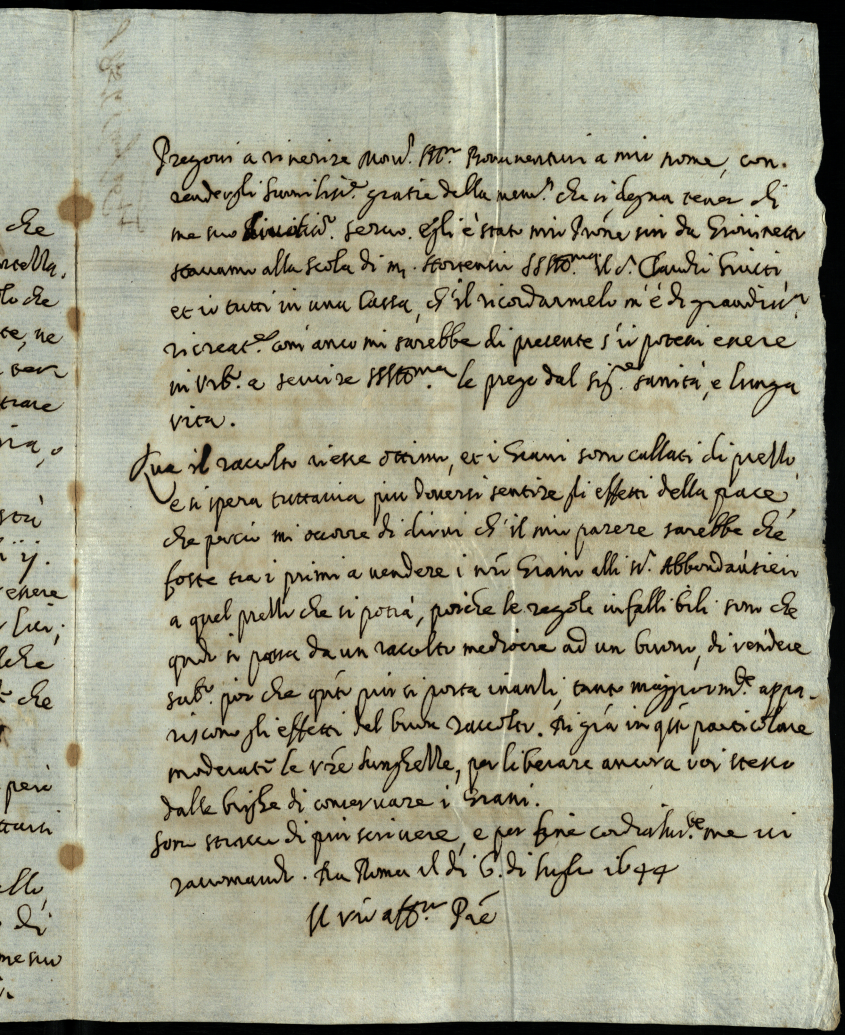 che
lo che
te, ne
trare
ria, o
stà
ij.
essere
lui;
che
che
però
di
me suo
Pregovi a riverire Mons.r Ill.mo Bonaventuri a mio nome, con
rendergli humiliss.e gratie della mem.a che si degna tener di
me suo servo. Egli è stato mio Prōne sin da Giovinetto
stavamo alla scola di m. SSIll.ma il S.r Claudio
et io tutti in una Cassa, ch'il ricordarmelo m'è di grandiss.a
ricreat.e com'anco mi sarebbe di presente s'io potessi essere
in Urb.o a servire SSIll.ma le prego dal Sig.re sanità, e lunga
vita.
Qua il raccolto riesce ottimo, et i Grani sono callati di prezzo
e si spera tuttavia più doversi sentire gli effetti della pace,
che perciò mi occorre di dirvi ch'il mio parere sarebbe che
foste tra i primi a vendere i nri Grani alli SS.ri Abbondantieri
a quel prezzo che si potrà, poiche le regole infallibili sono che
quando si passa da un raccolto mediocre ad un buono, di vendere
sub.o poi che q.nto più si porta inanzi, tanto maggiorm.te appa-
riscono gli effetti del buon raccolto. Si già in q.to particolare
moderate le vr̄e lunghezze, per liberare ancora voi stesso
dalle brighe di conservare i Grani.
Sono stracco di più scrivere, e per fine cordialm.te me vi
raccomando. Da Roma il dì 6. di luglio 1644
Il vr̄o aff.mo Prē